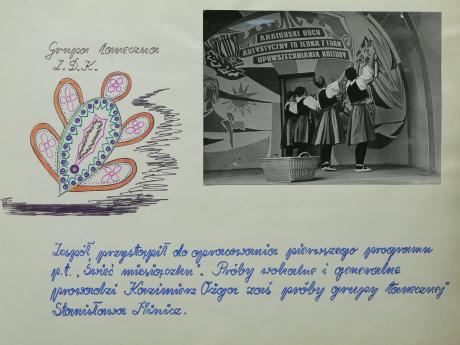 Grupa taneczna
Z.D.K.
AMATORSKI RUCH
ARTYSTYCZNY TO JEDNA Z FORM
UPOWSZECHNIANIA KULTURY
Zespół przystąpił do opracowania pierwszego programu
p.t. „Świeć miesiączku". Próby wokalne i generalne
prowadzi Kazimierz Ożga zaś próby grupy tanecznej
Stanisława Plinicz.